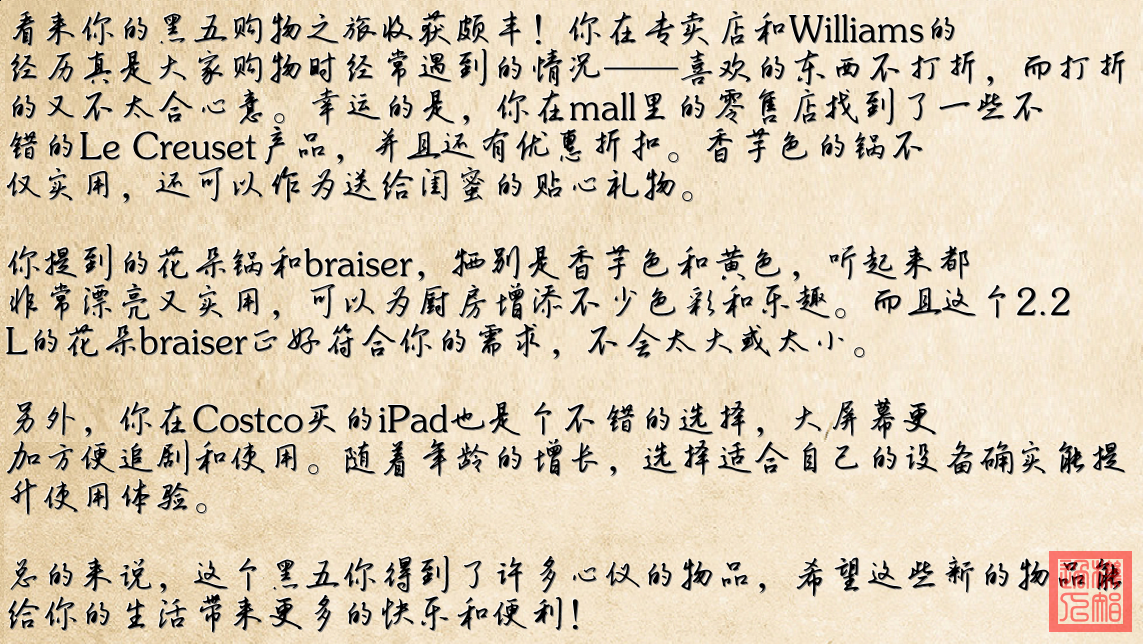 看来你的黑五购物之旅收获颇丰！你在专卖店和Williams的
经历真是大家购物时经常遇到的情况——喜欢的东西不打折，而打折
的又不太合心意。幸运的是，你在mall里的零售店找到了一些不
错的Le Creuset产品，并且还有优惠折扣。香芋色的锅不
仅实用，还可以作为送给闺蜜的贴心礼物。
你提到的花朵锅和braiser，特别是香芋色和黄色，听起来都
非常漂亮又实用，可以为厨房增添不少色彩和乐趣。而且这个2.2
L的花朵braiser正好符合你的需求，不会太大或太小。
另外，你在Costco买的iPad也是个不错的选择，大屏幕更
加方便追剧和使用。随着年龄的增长，选择适合自己的设备确实能提
升使用体验。
总的来说，这个黑五你得到了许多心仪的物品，希望这些新的物品能
给你的生活带来更多的快乐和便利！